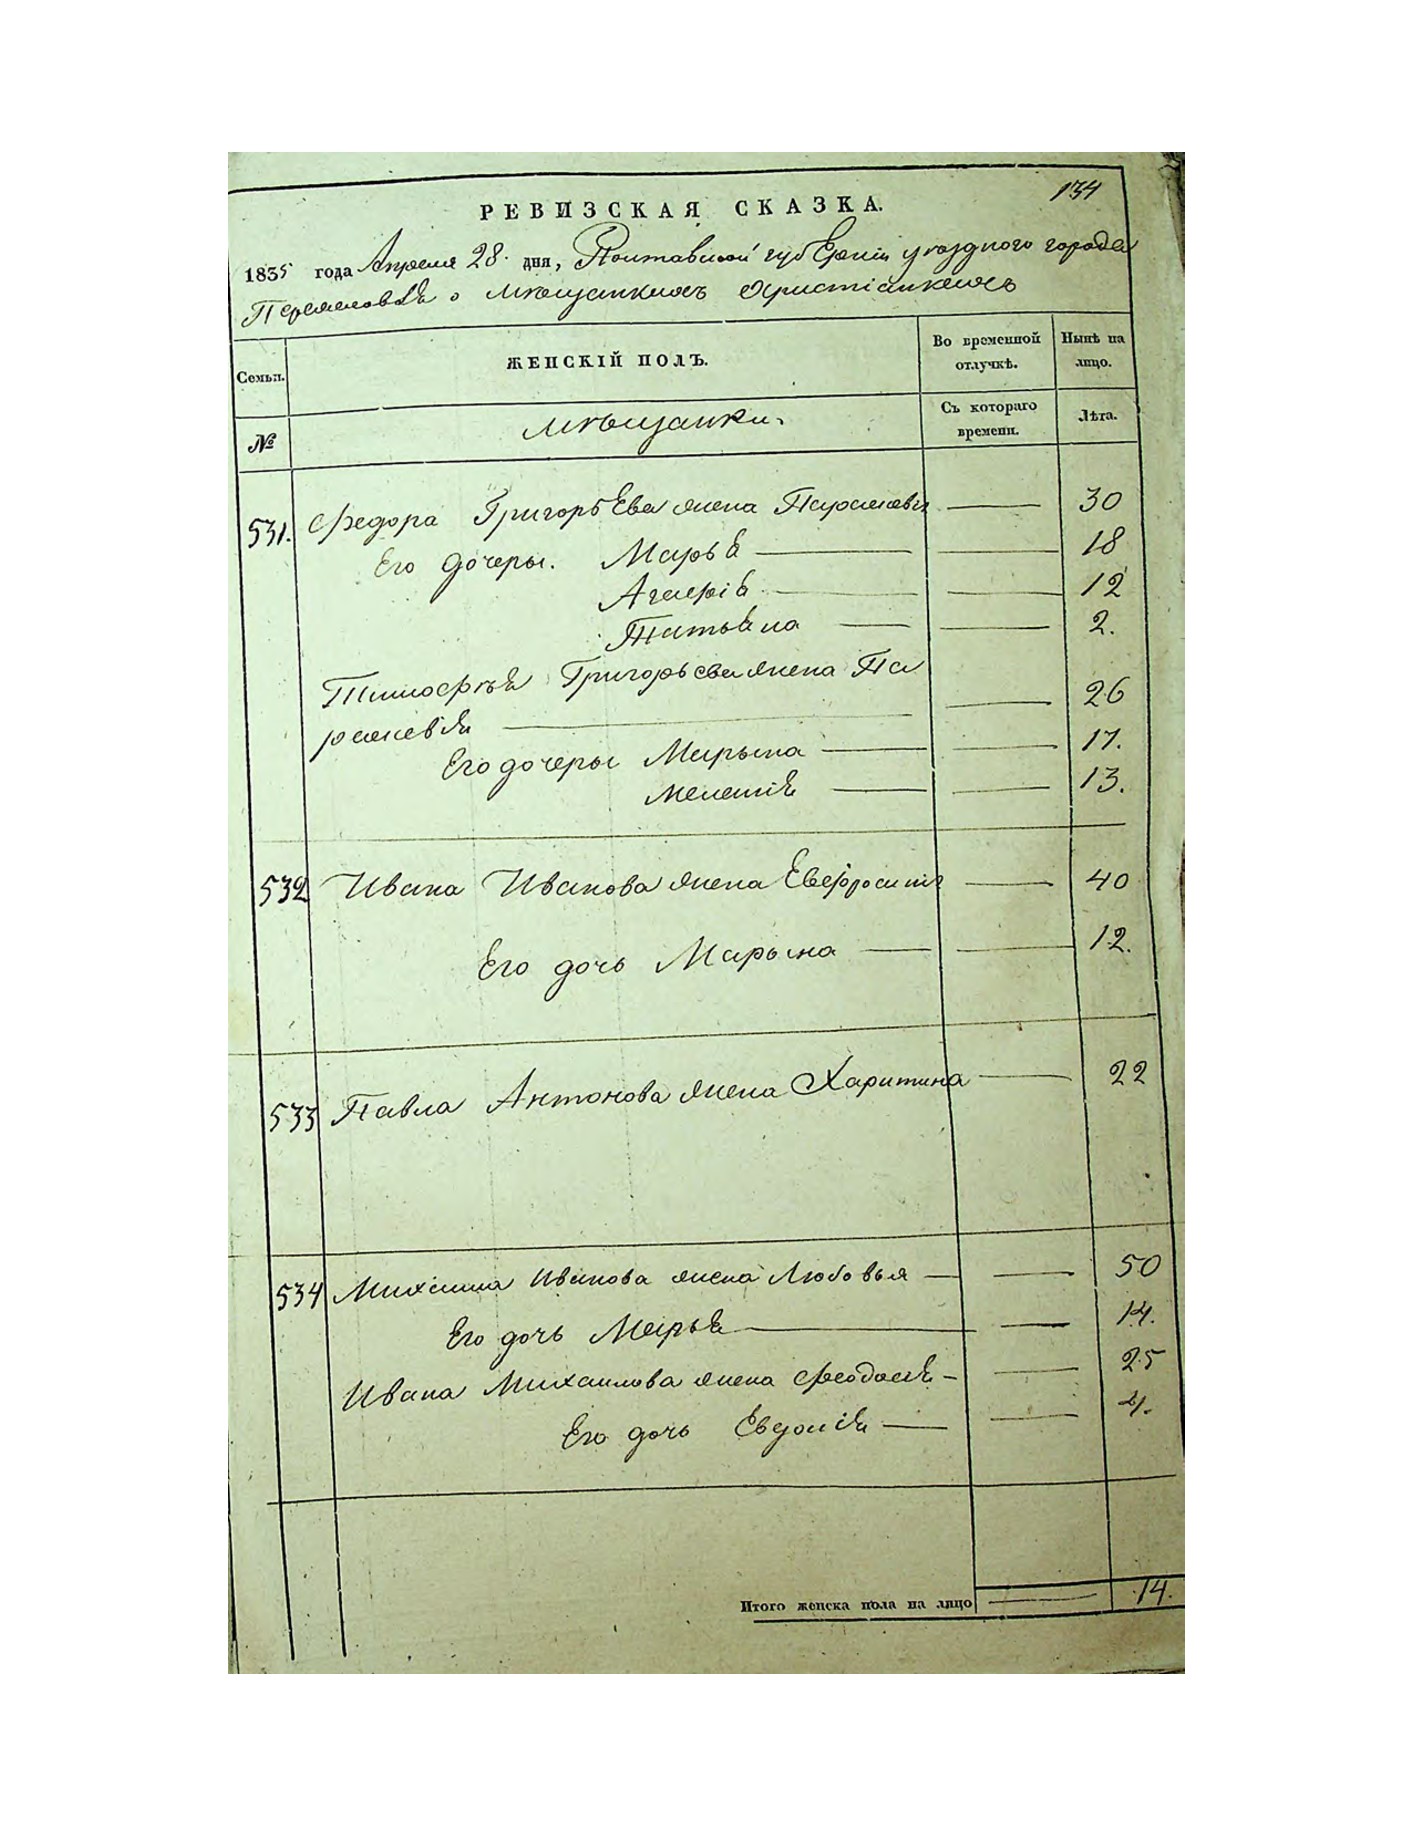 134
РЕВИЗСКАЯ СКАЗКА.
1835 года Апреля 28. дня, Полтавской губерніи уѣзднаго города
Переяслова о мѣщанкахъ христіанкахъ
Семьи. ЖЕНСКІЙ ПОЛЪ. Во временной отлучкѣ. Нынѣ на лицо.
№ мѣщанки. Съ котораго времени. Лѣта.
531. Федора Григорьева жена Параскевія — 30
Его дочеры. Марья — 18
Агафія — 12
Татьяна — 2.
Тимофѣя Григорьева жена Па
раскевія — 26
Его дочеры Марына — 17.
Мелетія — 13.
532 Ивана Иванова жена Евфросинія — 40
Его дочь Марына — 12.
533 Павла Антонова жена Харитина — 22
534 Михаила Иванова жена Любовья — 50
Его дочь Марья — 14.
Ивана Михаилова жена Феодосія — 25
Его дочь Евдокія — 4.
Итого женска пола на лицо — 14.